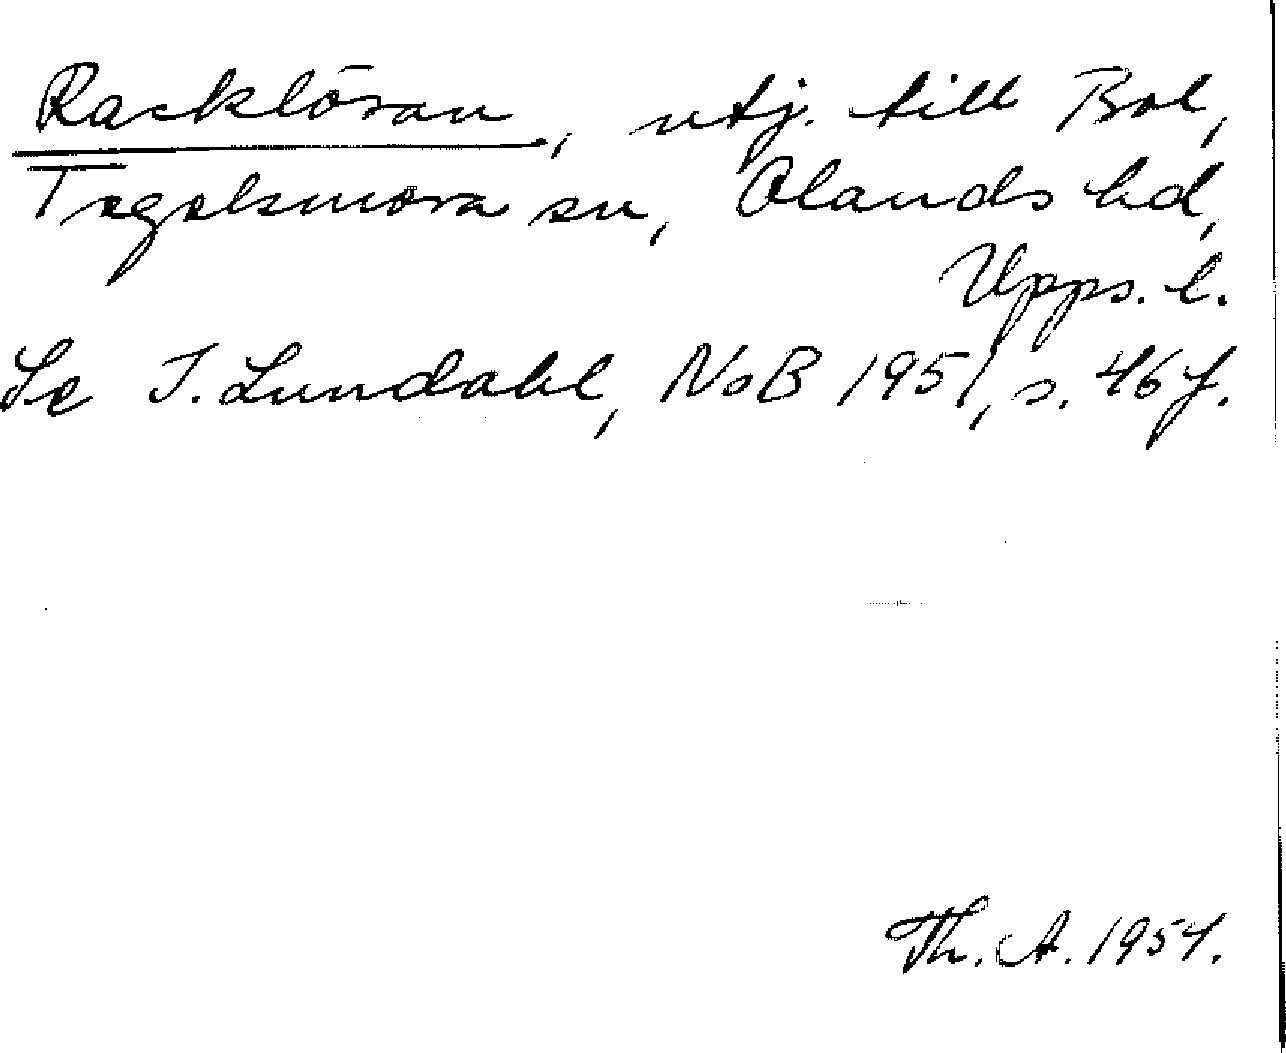 Racklösan, utj. till Bol,
Tegelsmora sn, Olands hd,
Upps. l.
Se I. Lundahl, NoB 1951, s. 46 f.
Th. A. 1954.